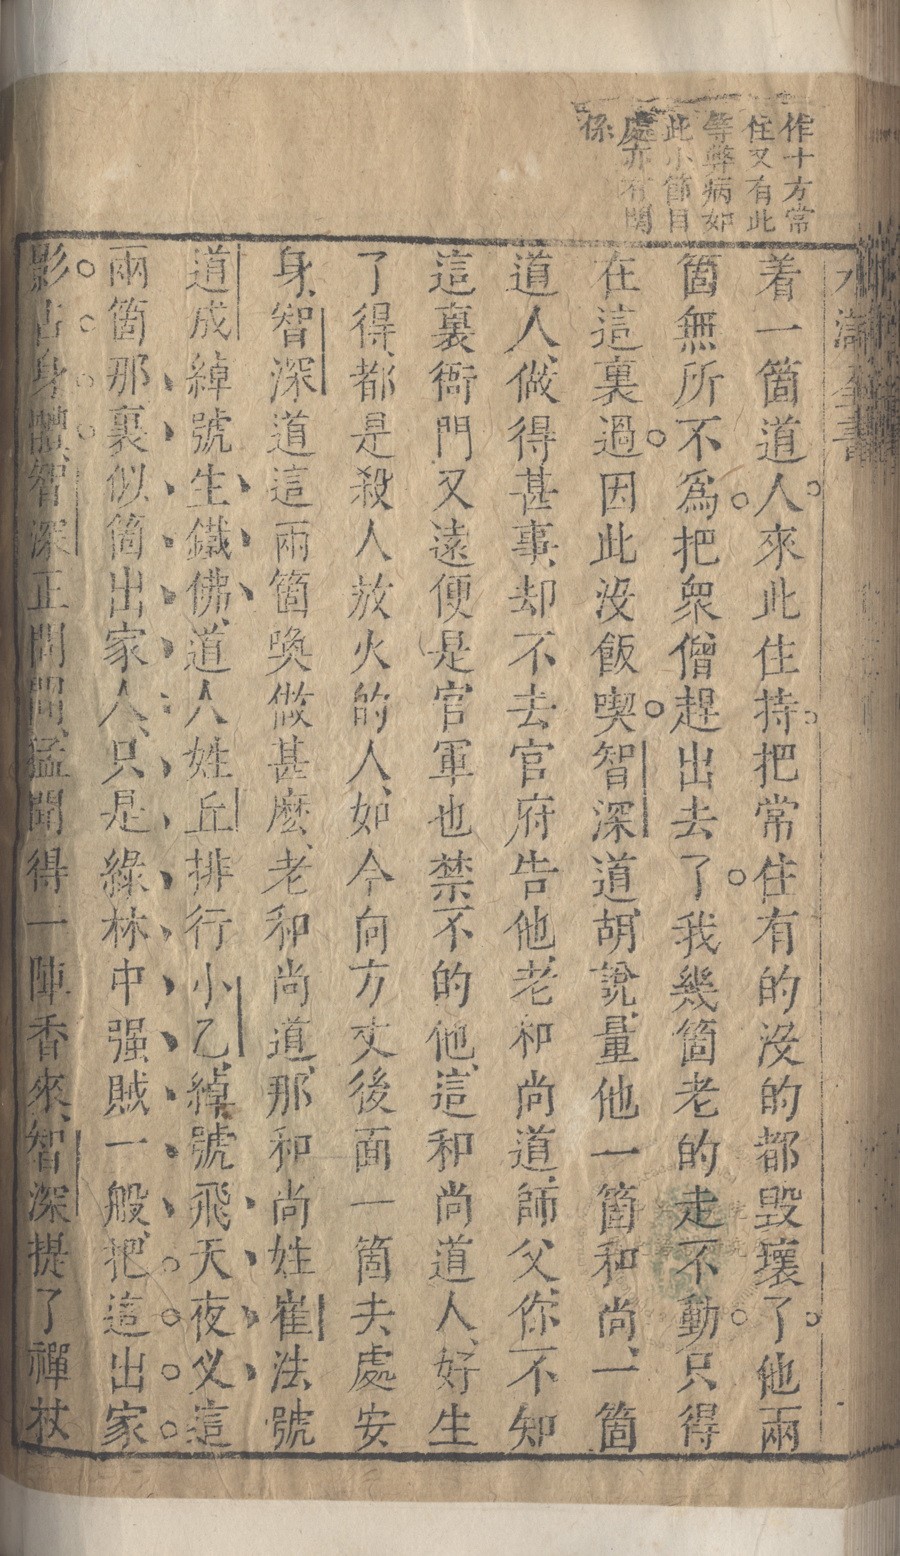 作十方常
住又有此
等弊病如
此小節目
處亦有関
係
水滸全書
着一箇道人來此住持把常住有的没的都毀壞了他兩
箇無所不爲把衆僧趕出去了我幾箇老的走不動只得
在這裏過因此没飯喫智深道胡說量他一箇和尚一箇
道人、做得甚事、却不去官府告他、老和尚道、師父、你不知
這裏衙門又遠便是官軍也禁不的他、這和尚道人、好生
了得、都是殺人放火的人、如今向方丈後面一箇去處安
身、智深道這兩箇喚做甚麽、老和尚道、那和尚姓崔法號
道成綽號生鐵佛、道人姓丘排行小乙、綽號飛天夜叉這
兩箇那裏似箇出家人、只是綠林中强賊一般、把這出家
影占身體、智深正問間、猛聞得一陣香來、智深提了禪杖